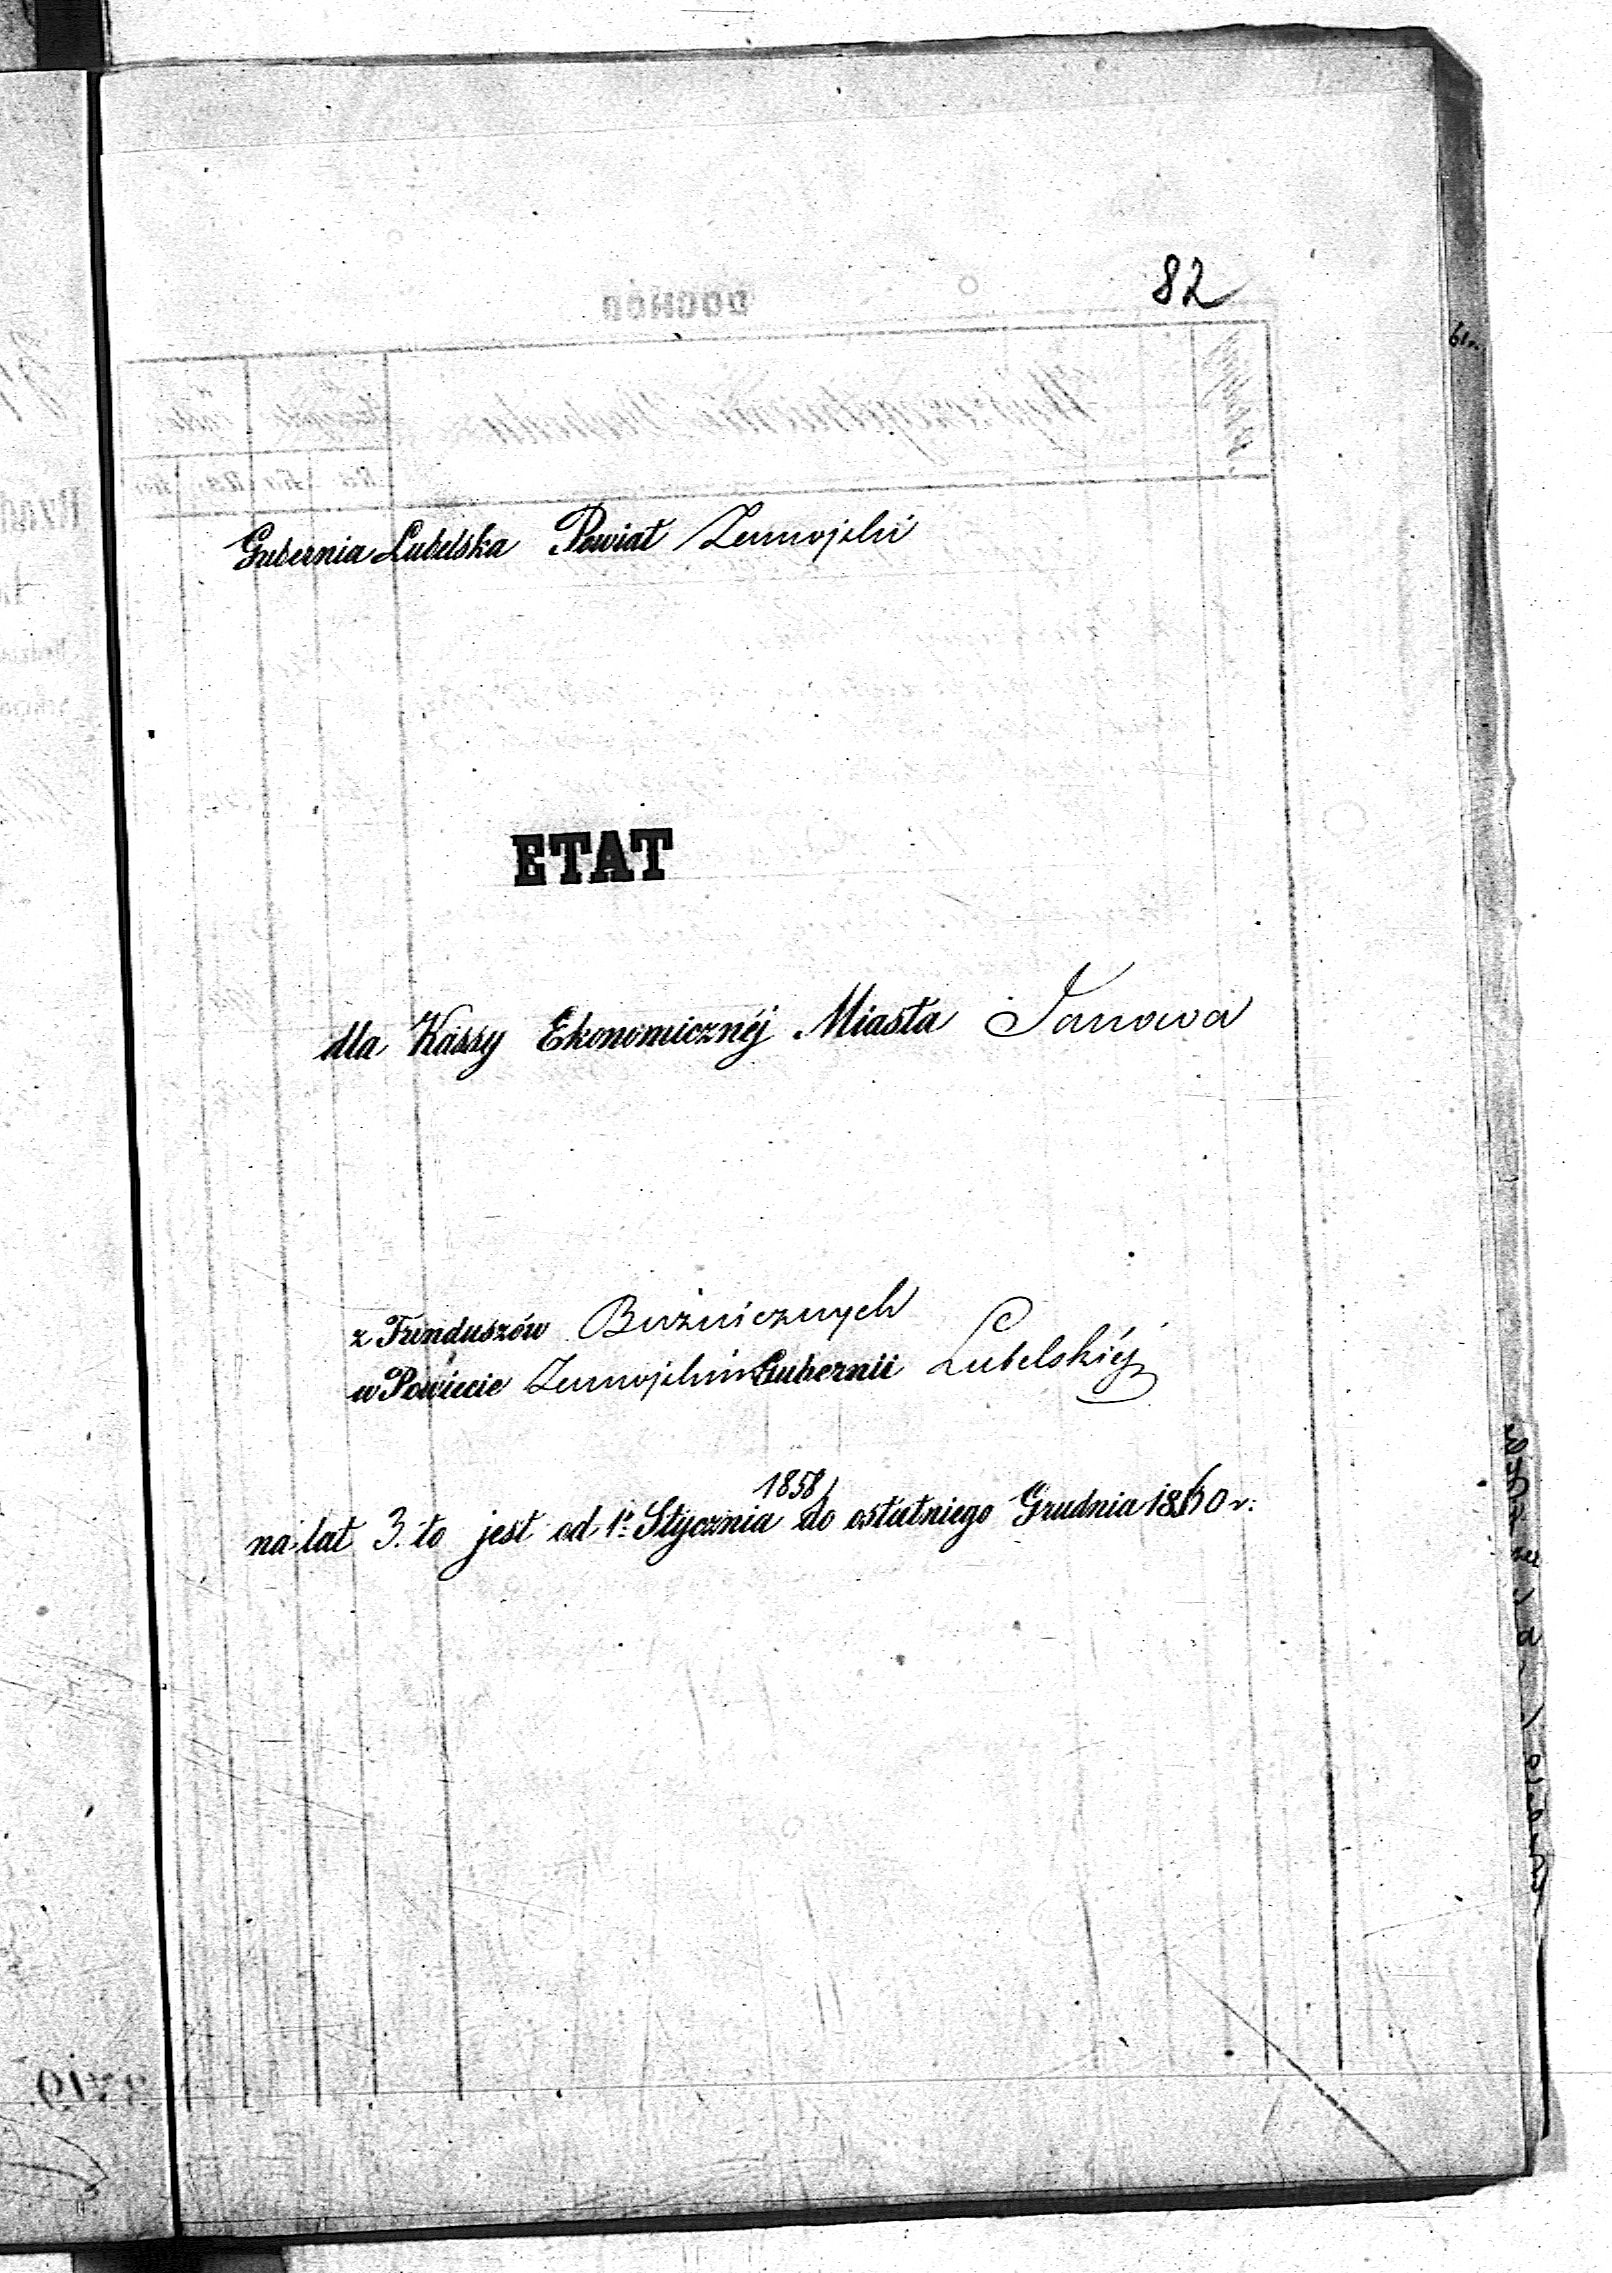 82
Gubernia Lubelska Powiat Zamojski
ETAT
dla Kassy Ekonomicznéj Miasta Janowa
z Funduszów Bużnicznych
w Powiecie Zamojskim Gubernii Lubelskiéj
1858
na lat 3. to jest od 1º Stycznia do ostatniego Grudnia 1860 r: